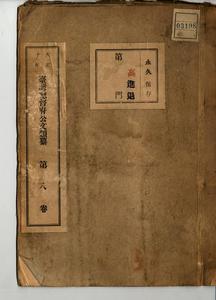 03198
永久保存
高
進退
第 門
臺灣總督府公文類纂 第八卷